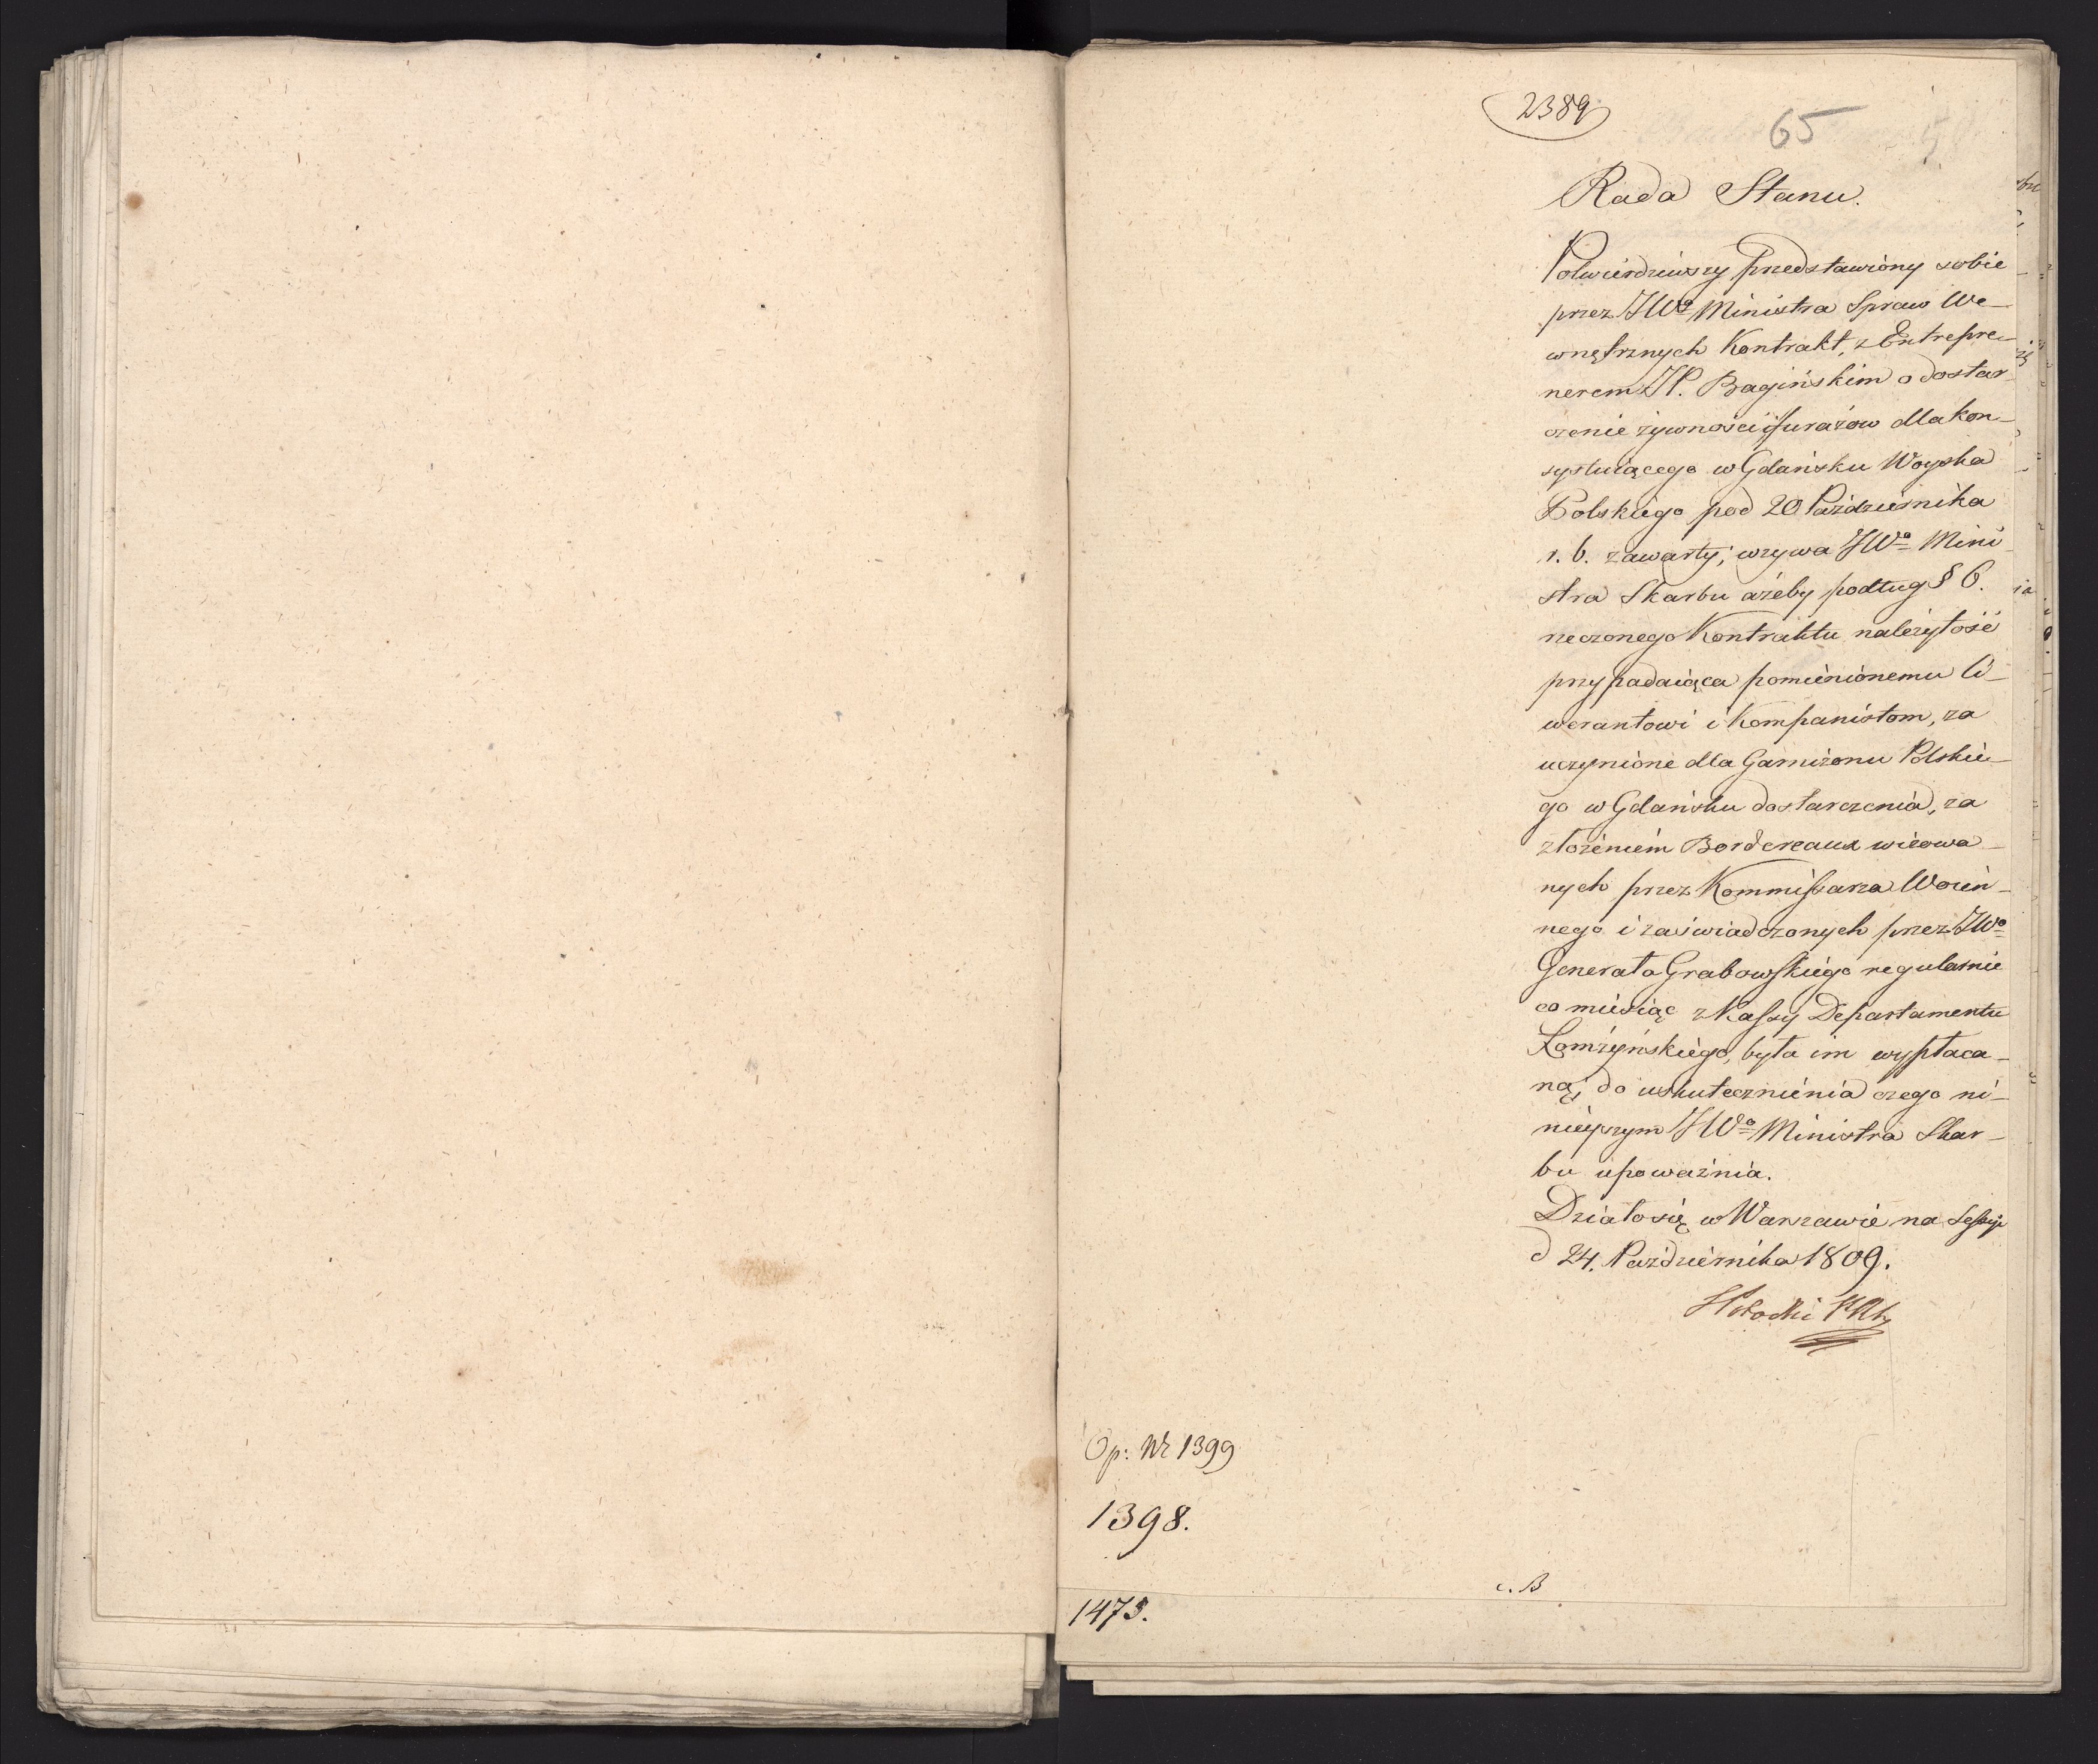 2389
65
Rada Stanu.
Potwierdziwszy przedstawiony sobie
przez JWº Ministra Spraw We-
wnętrznych Kontrakt, z Entrepre-
nerem JP. Bagińskim o dostar-
czenie żywności i furażow dla kon-
systuiącego w Gdańsku Woyska
Polskiego pod 20 Października
r. b. zawarty; wzywa JWº Mini-
stra Skarbu ażeby podług § 6.
rzeczonego Kontraktu należytość
przypadaiąca pomienionemu Li-
werantowi i Kompanistom, za
uczynione dla Garnizonu Polskie-
go w Gdańsku dostarczenia, za
złożeniem Bordereaux wizowa-
nych przez Kommissarza Woien-
nego i zaświadczonych przez JWº
Generała Grabowskiego regularnie
co miesiąc z Kassy Departamentu
Łomżyńskiego, była im wypłaca-
ną; do uskutecznienia czego ni-
nieyszym JWº Ministra Skar-
bu upoważnia.
Działo się w Warszawie na Sessyi
d 24. Października 1809.
Op: Nr 1399
1398.
c. B
1473.